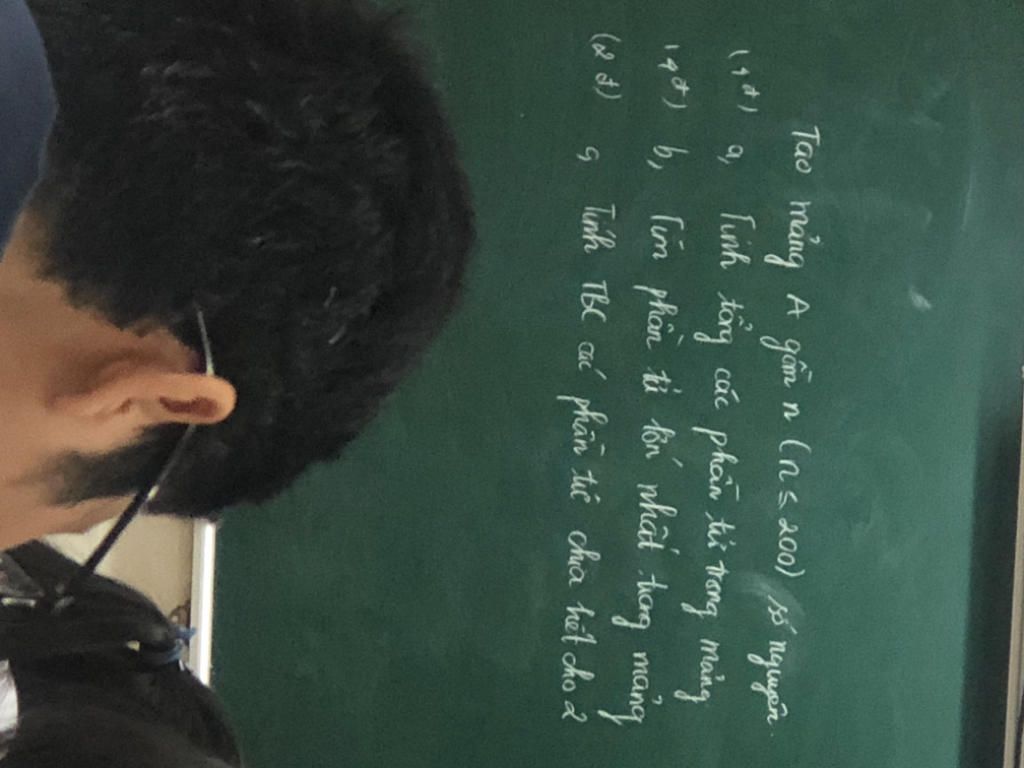 Tạo mảng A gồm n (n ≤ 200) số nguyên.
(4đ) a, Tính tổng các phần tử trong mảng
(4đ) b, Tìm phần tử lớn nhất trong mảng
(2đ) c, Tính TBC các phần tử chia hết cho 2